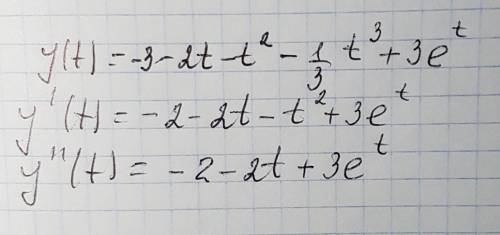 y(t) = -3 - 2t - t² - 1/3 t³ + 3eᵗ
y'(t) = -2 - 2t - t² + 3eᵗ
y''(t) = -2 - 2t + 3eᵗ